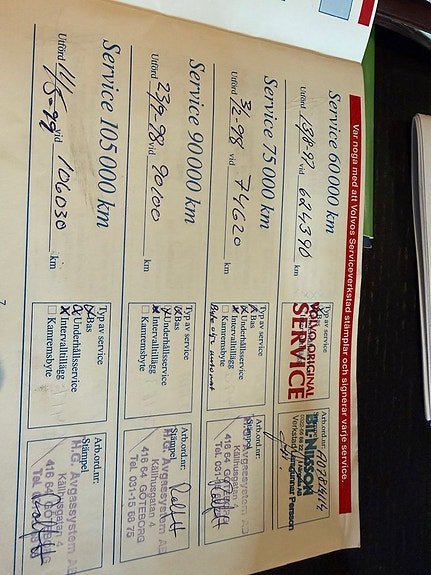 Var noga med att Volvos Serviceverkstad stämplar och signerar varje service.
Service 60000 km
Utförd 13/8-97 vid 624390 km
Typ av service
VOLVO ORIGINAL
SERVICE
Arb.ord.nr:
BIL-NILSSON
Service 75000 km
Utförd 3/2-98 vid 74620 km
Typ av service
Bas
Underhållsservice
Intervalltillägg
Kamremsbyte
Arb.ord.nr:
Stämpel
H.G. Avgassystem AB
Källhusgatan 4
416 64 GÖTEBORG
Tel. 031-15 68 75
Service 90000 km
Utförd 23/9-98 vid 90100 km
Typ av service
Bas
Underhållsservice
Intervalltillägg
Kamremsbyte
Arb.ord.nr:
Stämpel
H.G. Avgassystem AB
Källhusgatan 4
416 64 GÖTEBORG
Tel. 031-15 68 75
Service 105000 km
Utförd 11/5-99 vid 106030 km
Typ av service
Bas
Underhållsservice
Intervalltillägg
Kamremsbyte
Arb.ord.nr:
Stämpel
H.G. Avgassystem AB
Källhusgatan 4
416 64 GÖTEBORG
7